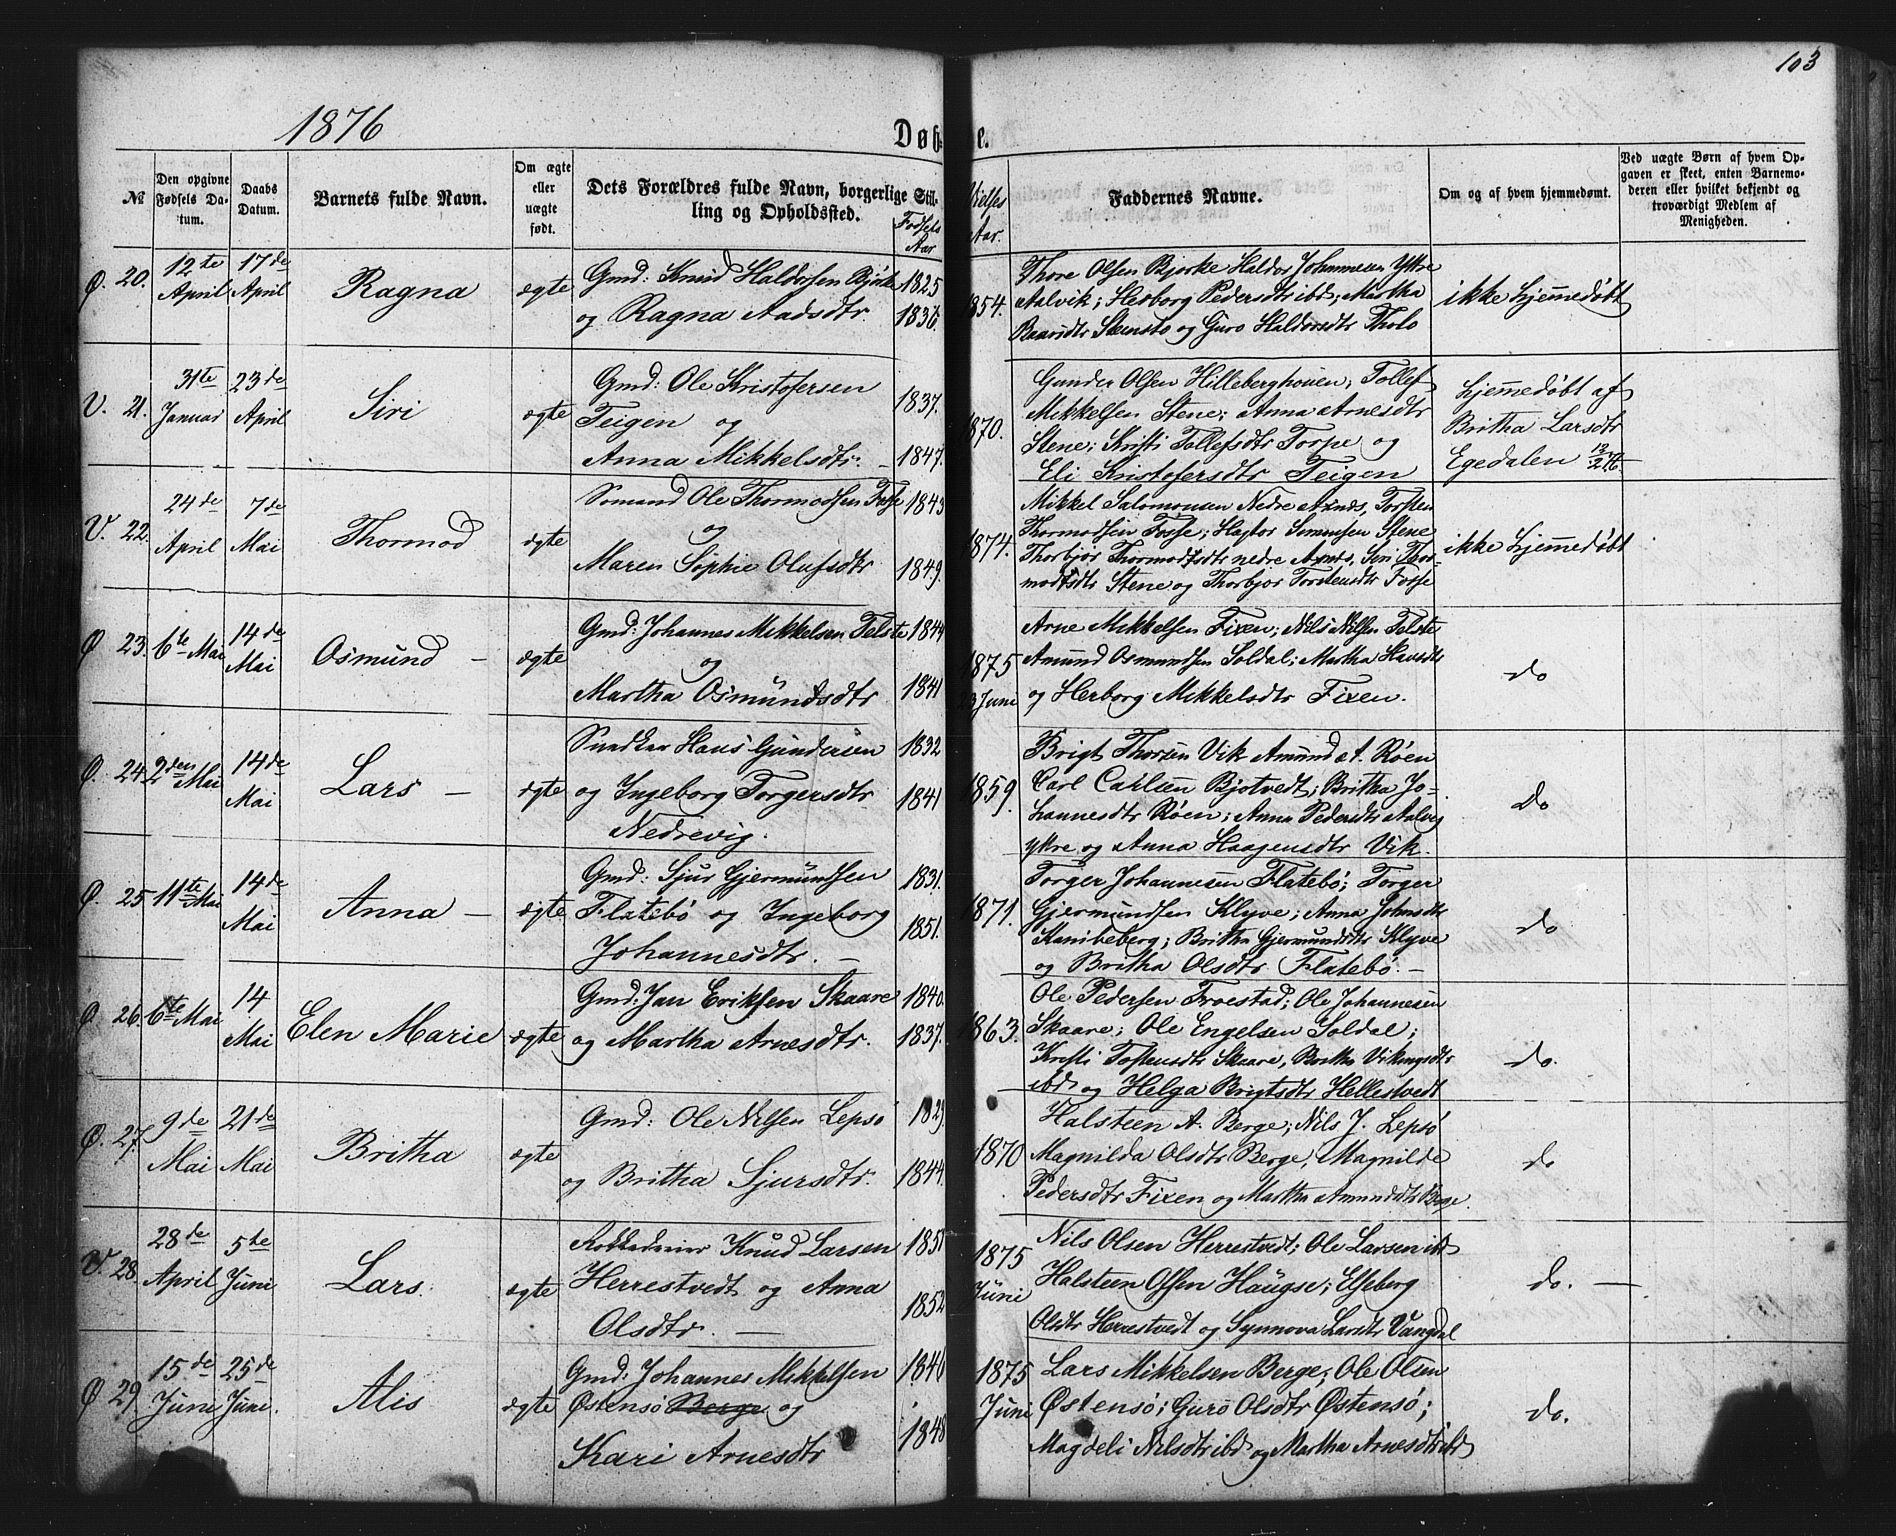 103
1876
Døbte.
№
Den opgivne Fødsels Datum.
Daabs Datum.
Barnets fulde Navn.
Om ægte eller uægte født.
Dets Forældres fulde Navn, borgerlige Stilling og Opholdssted.
Fødsels Aar
Vielses Aar.
Faddernes Navne.
Om og af hvem hjemmedøbt.
Ved uægte Børn af hvem Opgaven er skeet, enten Barnemoderen eller hvilket bekjendt og troværdigt Medlem af Menigheden.
Ø. 20. 12te April 17de April Ragna ægte
Gmd: Knud Haldorsen Bjørke 1825
og Ragna Aadsdtr. 1836.
1854.
Thore Olsen Bjørke Haldor Johannesen Yttre
Aalvik; Herborg Pedersdtr ibd; Martha
Baarsdtr Stensto og Guro Haldorsdtr Tholo
ikke hjemmedøbt
V. 21. 31te Januar 23de April Siri ægte
Gmd: Ole Kristofersen 1837.
Teigen og
Anna Mikkelsdtr. 1847.
1870.
Gunder Olsen Hilleberghouen; Tollef
Mikkelsen Stene; Anna Arnesdtr
Stene; Kristi Tollefsdtr Torpe og
Eli Kristofersdtr Teigen
hjemmedøbt af
Britha Larsdtr
Egedalen 12/2 76
V. 22. 24de April 7de Mai Thormod ægte
Sømand Ole Thormodsen Fosse 1843
og
Maren Sophie Olufsdtr 1849.
1874.
Mikkel Salomonsen Nedre Axnes, Torsten
Thormodsen Fosse; Hagtor Simensen Stene
Thorbjør Thormodsdtr nedre Axnes, Siri Thor-
modsdtr Stene og Thorbjør Torstensdtr Fosse
ikke hjemmedøbt
Ø 23. 6te Mai 14de Mai Osmund – ægte
Gmd: Johannes Mikkelsen Telste 1844
og
Martha Osmundsdtr 1841
1875
23 Juni
Arne Mikkelsen Fixen; Nils Nilsen Telste
Amund Osmundsen Soldal; Martha Hansdtr
og Herborg Mikkelsdtr Fixen.
do
Ø. 24. 2den Mai 14de Mai Lars – ægte
Snedker Hans Gundersen 1832
og Ingeborg Torgersdtr 1841
Nedrevig.
1859.
Brigt Thorsen Vik Amund A. Røen
Carl Carlsen Bjotvedt; Britha Jo-
hannesdtr Røen; Anna Pedersdtr Aalvig
yttre og Anna Haagensdtr Vik.
do
Ø. 25 11te Mai 14de Mai Anna – ægte
Gmd: Sjur Gjermundsen 1831.
Flatebø og Ingeborg 1851.
Johannesdtr. –
1871.
Torger Johannesen Flatebø; Torger
Gjermundsen Klyve; Anna Johnsdtr
Kanikeberg; Britha Gjermundsdtr Klyve
og Britha Olsdtr Flatebø. –
do
Ø. 26. 6te Mai 14 Mai Elen Marie ægte
Gmd: Jan Eriksen Skaare 1840.
og Martha Arnesdtr. 1837.
1863.
Ole Pedersen Froestad; Ole Johannesen
Skaare; Ole Engelsen Soldal;
Kristi Tostensdtr Skaare, Britha Vikingsdtr
ibd og Helga Brigtsdtr Hellestvedt
do.
Ø. 27. 9de Mai 21de Mai Britha ægte
Gmd: Ole Nilsen Lepsø 1829.
og Britha Sjursdtr. 1844.
1870
Halsteen A. Berge; Nils J. Lepsø
Magnilda Olsdtr Berge, Magnilde
Pedersdtr Fixen og Martha Amundsdtr Berge.
do
V. 28. 28de April 5te Juni Lars. ægte
Knud Larsen 1851
Herrestvedt og Anna 1852
Olsdtr. –
1875
Juni
Nils Olsen Herrestvedt; Ole Larsen ibd
Halsteen Olsen Haugse; Elseberg
Olsdtr Herrestvedt og Synnova Larsdtr Vangdal
do. –
Ø 29. 15de Juni 25de Juni. Alis ægte
Gmd: Johannes Mikkelsen 1846
Østensø Berge og
Kari Arnesdtr 1848
1875
Juni
Lars Mikkelsen Berge; Ole Olsen
Østensø; Guro Olsdtr Østensø;
Magdeli Nilsdtr ibd og Martha Arnesdtr ibd
do.